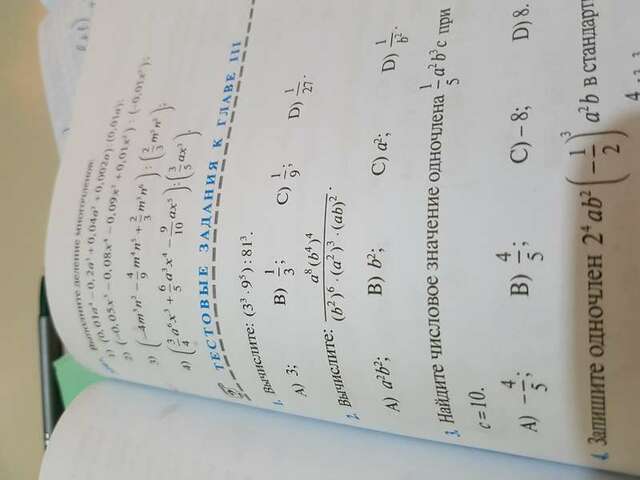 Выполните деление многочленов:
1) (0,01a⁴ − 0,2a³ + 0,04a² + 0,002a) : (0,01a);
2) (−0,05x⁵ − 0,08x⁴ − 0,09x³ + 0,01x²) : (−0,01x²);
3) (−4m³n² − 4/9 m⁴n⁵ + 2/3 m³n⁶) : (2/3 m³n²);
4) (3/4 a⁶x³ + 6/5 a³x⁴ − 9/10 ax⁵) : (3/5 ax³).
ТЕСТОВЫЕ ЗАДАНИЯ К ГЛАВЕ III
1. Вычислите: (3³ · 9⁵) : 81³.
A) 3; B) 1/3; C) 1/9; D) 1/27.
2. Вычислите: a⁸(b⁴)⁴ / (b²)⁶ · (a²)³ · (ab)².
A) a²b²; B) b²; C) a²; D) 1/b².
3. Найдите числовое значение одночлена 1/5 a²b³c при
c = 10.
A) −4/5; B) 4/5; C) −8; D) 8.
4. Запишите одночлен 2⁴ab²(−1/2)³ a²b в стандарт